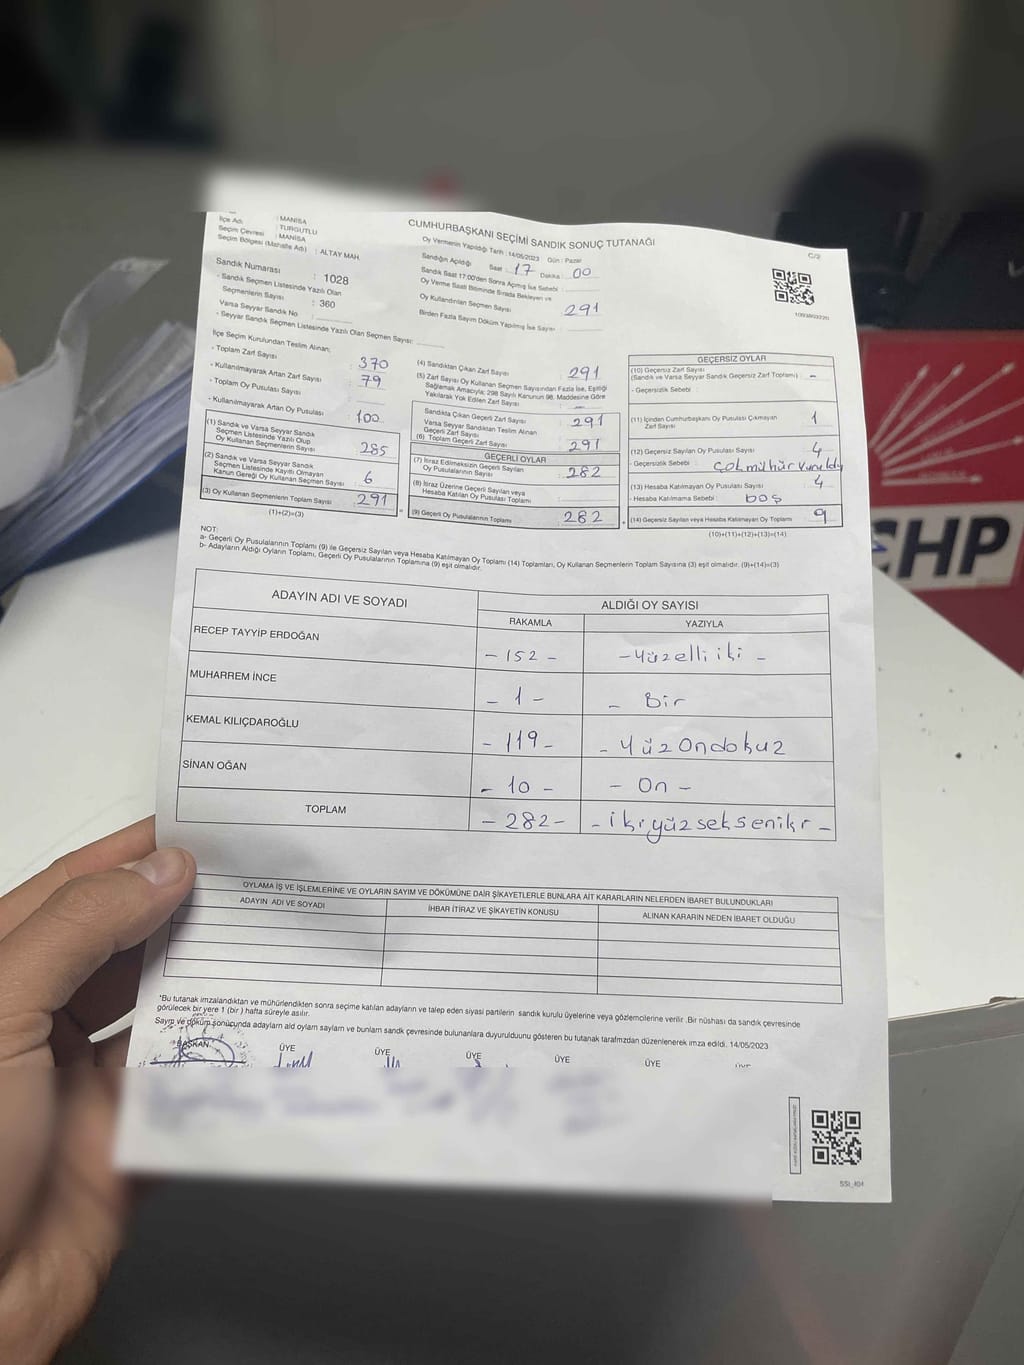 : MANİSA
İlçe Adı : TURGUTLU
Seçim Çevresi : MANİSA
Seçim Bölgesi (Mahalle Adı) : ALTAY MAH.
Sandık Numarası : 1028
- Sandık Seçmen Listesinde Yazılı Olan
Seçmenlerin Sayısı : 360
Varsa Seyyar Sandık No
- Seyyar Sandık Seçmen Listesinde Yazılı Olan Seçmen Sayısı:
CUMHURBAŞKANI SEÇİMİ SANDIK SONUÇ TUTANAĞI
Oy Vermenin Yapıldığı Tarih : 14/05/2023 Gün : Pazar
Sandığın Açıldığı Saat : 17 Dakika : 00
Sandık Saat 17.00'den Sonra Açılmış İse Sebebi :
Oy Verme Saati Bitiminde Sırada Bekleyen ve
Oy Kullandırılan Seçmen Sayısı : 291
Birden Fazla Sayım Döküm Yapılmış İse Sayısı :
C/2
İlçe Seçim Kurulundan Teslim Alınan;
- Toplam Zarf Sayısı : 370
- Kullanılmayarak Artan Zarf Sayısı : 79
- Toplam Oy Pusulası Sayısı
- Kullanılmayarak Artan Oy Pusulası : 100
(1) Sandık ve Varsa Seyyar Sandık
Seçmen Listesinde Yazılı Olup
Oy Kullanan Seçmenlerin Sayısı : 285
(2) Sandık ve Varsa Seyyar Sandık
Seçmen Listesinde Kayıtlı Olmayan
Kanun Gereği Oy Kullanan Seçmen Sayısı : 6
(3) Oy Kullanan Seçmenlerin Toplam Sayısı : 291
(1)+(2)=(3)
(4) Sandıktan Çıkan Zarf Sayısı : 291
(5) Zarf Sayısı Oy Kullanan Seçmen Sayısından Fazla İse, Eşitliği
Sağlamak Amacıyla; 298 Sayılı Kanunun 98. Maddesine Göre
Yakılarak Yok Edilen Zarf Sayısı : —
Sandıkta Çıkan Geçerli Zarf Sayısı : 291
Varsa Seyyar Sandıktan Teslim Alınan
Geçerli Zarf Sayısı
(6) Toplam Geçerli Zarf Sayısı : 291
GEÇERLİ OYLAR
(7) İtiraz Edilmeksizin Geçerli Sayılan
Oy Pusulalarının Sayısı : 282
(8) İtiraz Üzerine Geçerli Sayılan veya
Hesaba Katılan Oy Pusulası Toplamı
(9) Geçerli Oy Pusulalarının Toplamı : 282
GEÇERSİZ OYLAR
(10) Geçersiz Zarf Sayısı
(Sandık ve Varsa Seyyar Sandık Geçersiz Zarf Toplamı) : -
- Geçersizlik Sebebi
(11) İçinden Cumhurbaşkanı Oy Pusulası Çıkmayan
Zarf Sayısı : 1
(12) Geçersiz Sayılan Oy Pusulası Sayısı : 4
- Geçersizlik Sebebi : çok mühür vuruldu
(13) Hesaba Katılmayan Oy Pusulası Sayısı : 4
- Hesaba Katılmama Sebebi : boş
(14) Geçersiz Sayılan veya Hesaba Katılmayan Oy Toplamı : 9
(10)+(11)+(12)+(13)=(14)
NOT:
a- Geçerli Oy Pusulalarının Toplamı (9) ile Geçersiz Sayılan veya Hesaba Katılmayan Oy Toplamı (14) Toplamları, Oy Kullanan Seçmenlerin Toplam Sayısına (3) eşit olmalıdır. (9)+(14)=(3)
b- Adayların Aldığı Oyların Toplamı, Geçerli Oy Pusulalarının Toplamına (9) eşit olmalıdır.
ADAYIN ADI VE SOYADI ALDIĞI OY SAYISI
RAKAMLA YAZIYLA
RECEP TAYYİP ERDOĞAN - 152 - - Yüzelli iki -
MUHARREM İNCE - 1 - - Bir
KEMAL KILIÇDAROĞLU - 119 - - Yüz Ondokuz
SİNAN OĞAN - 10 - - On -
TOPLAM - 282 - - ikiyüz seksen iki -
OYLAMA İŞ VE İŞLEMLERİNE VE OYLARIN SAYIM VE DÖKÜMÜNE DAİR ŞİKAYETLERLE BUNLARA AİT KARARLARIN NELERDEN İBARET BULUNDUKLARI
ADAYIN ADI VE SOYADI İHBAR İTİRAZ VE ŞİKAYETİN KONUSU ALINAN KARARIN NEDEN İBARET OLDUĞU
*Bu tutanak imzalandıktan ve mühürlendikten sonra seçime katılan adayların ve talep eden siyasi partilerin sandık kurulu üyelerine veya gözlemcilerine verilir .Bir nüshası da sandık çevresinde
görülecek bir yere 1 (bir ) hafta süreyle asılır.
Sayım ve döküm sonucunda adayların ald oyların sayların ve bunların sandk çevresinde bulunanlara duyurulduunu gösteren bu tutanak tarafmzdan düzenlenerek imza edildi. 14/05/2023
BAŞKAN ÜYE ÜYE ÜYE ÜYE ÜYE
CHP